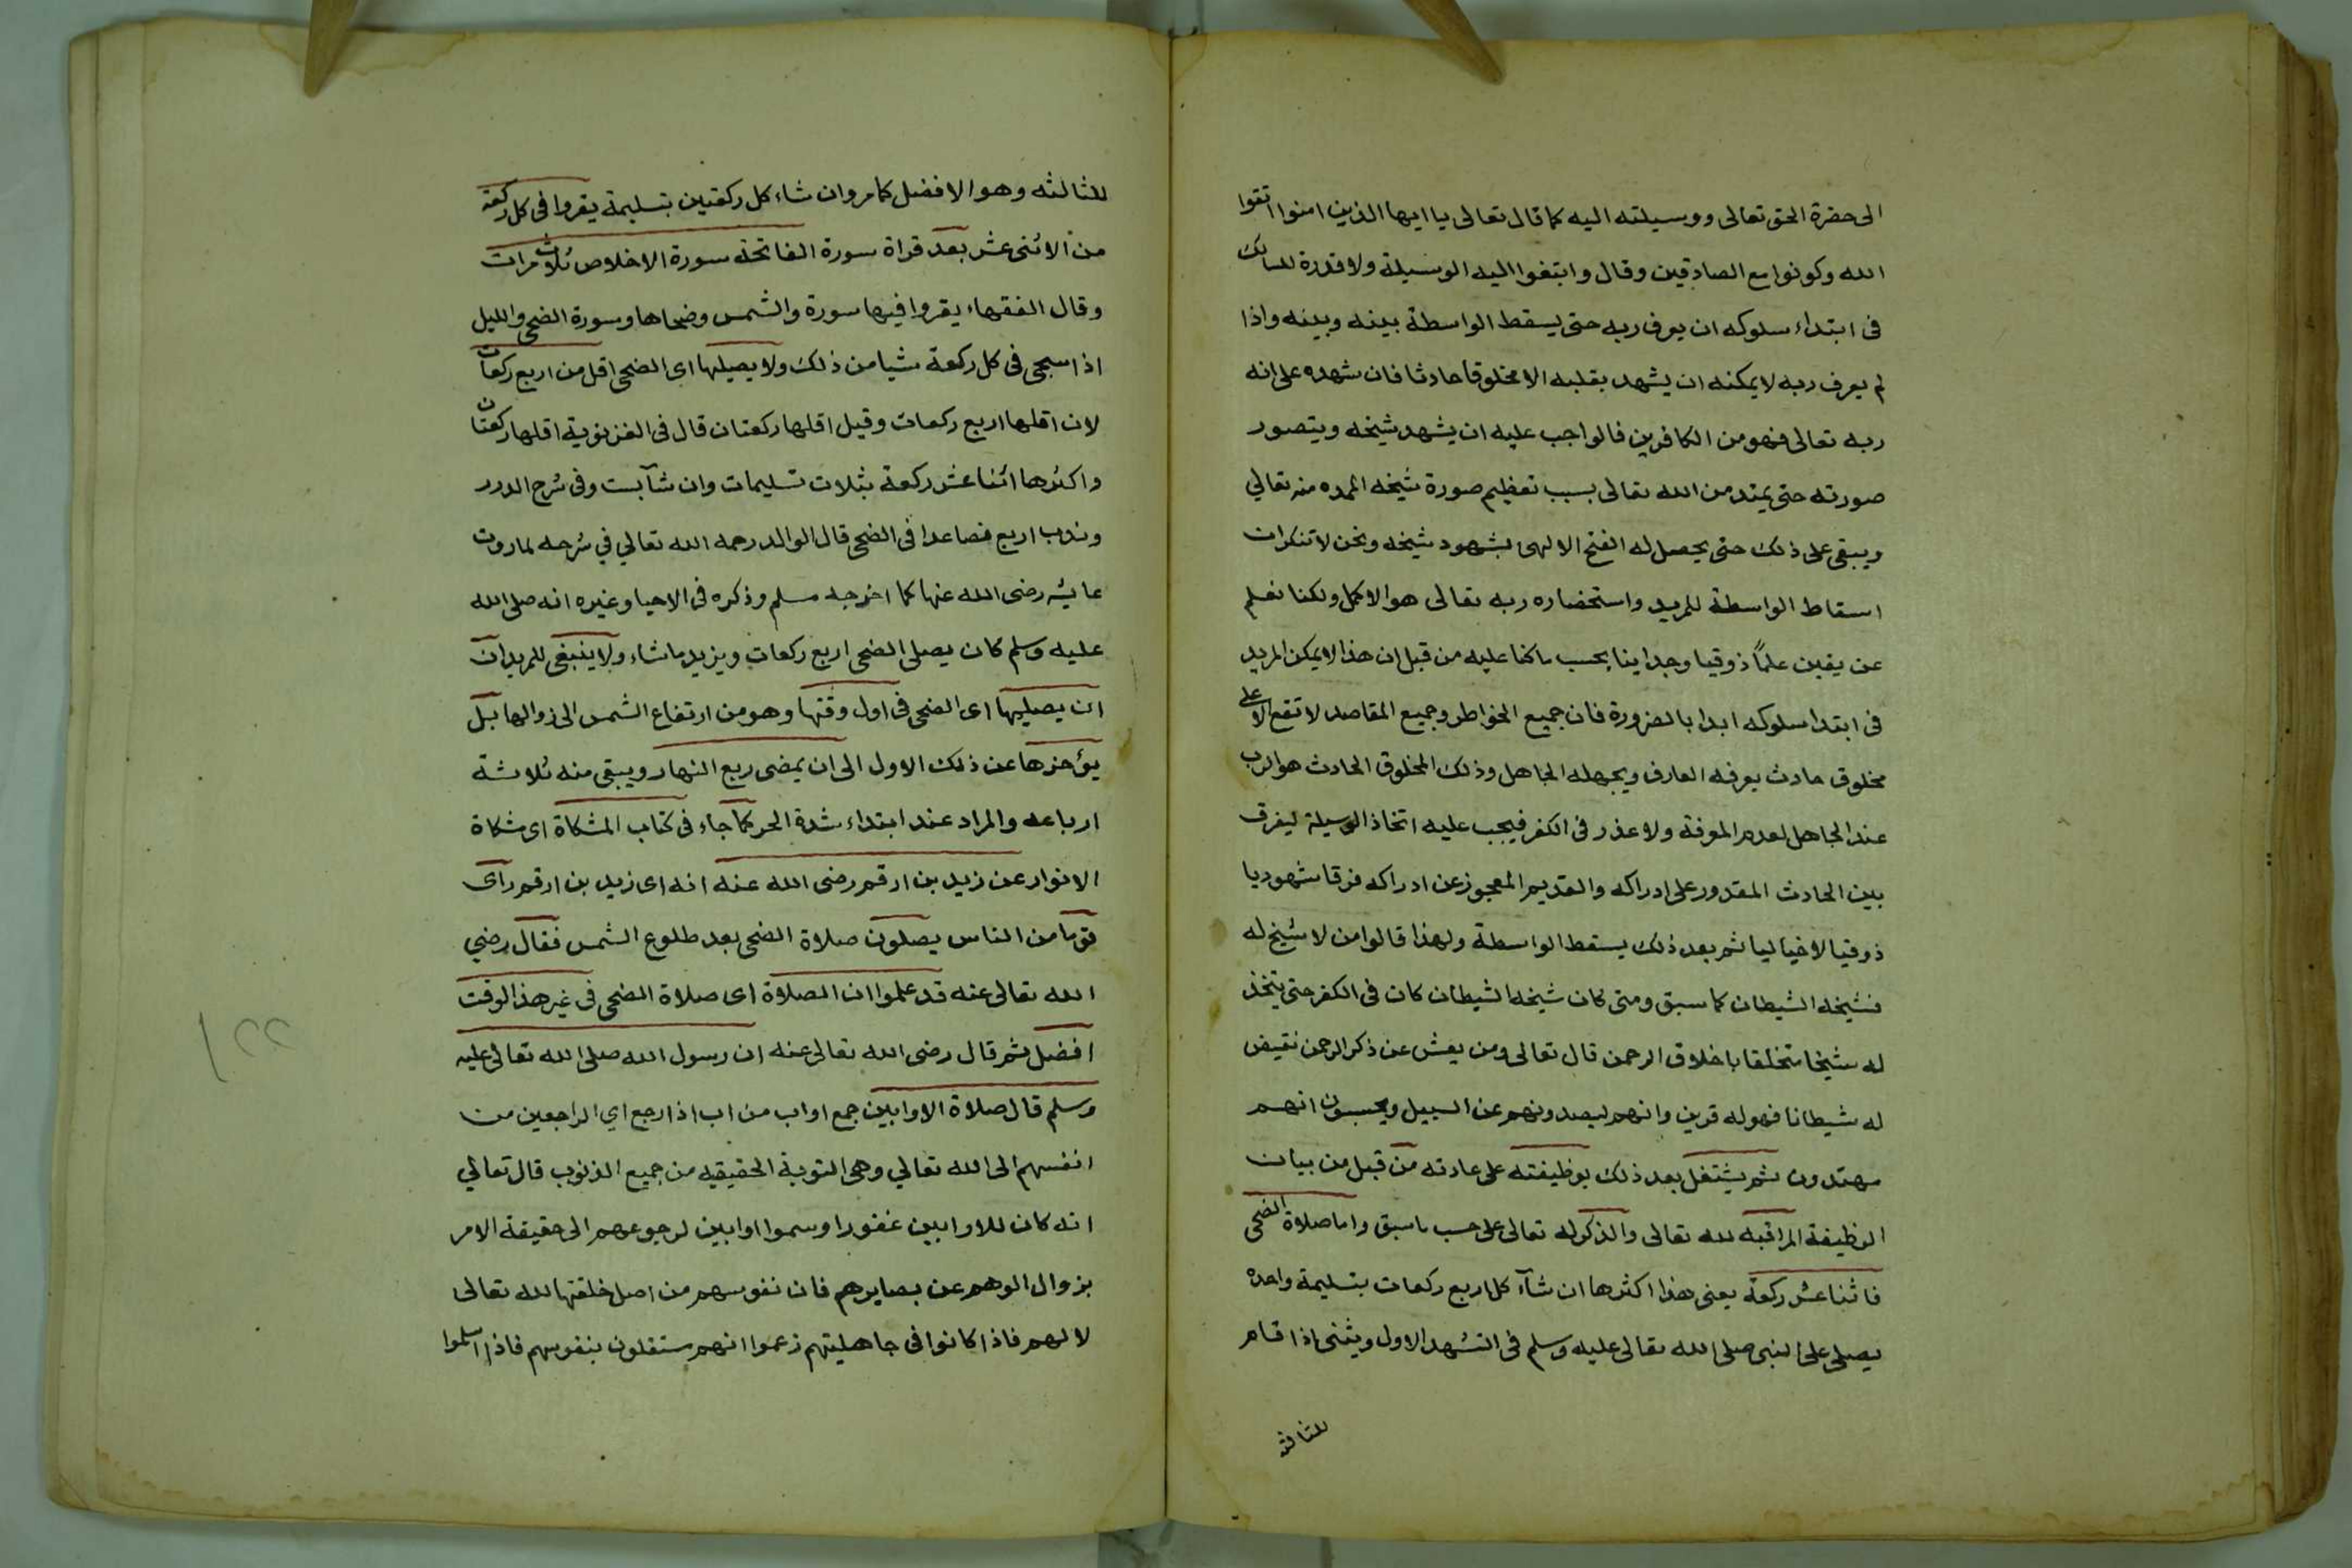 الى حضرة الحق تعالى ووسيلته اليه كما قال تعالى يا ايها الذين امنوا اتقوا
الله وكونوا مع الصادقين وقال وابتغوا اليه الوسيلة ولا قدرة للسالك
فى ابتداء سلوكه ان يعرف ربه حتى يسقط الواسطة بينه وبينه واذا
لم يعرف ربه لا يمكنه ان يشهد بقلبه الا مخلوقا حادثا فان شهده على انه
ربه تعالى فهو من الكافرين فالواجب عليه ان يشهد شيخه ويتصور
صورته حتى يمتد من الله تعالى بسبب تعظيم صورة شيخه الممده منه تعالي
ويبقى على ذلك حتى يحصل له الفتح الالهى بشهود شيخه ونحن لا ننكر ان
اسقاط الواسطة للمريد واستحضاره ربه تعالى هو الاكمل ولكنا نعلم
عن يقين علماً ذوقيا وجدانيا بحسب ما كنا عليه من قبل ان هذا لا يمكن المريد
فى ابتدا سلوكه ابدا بالضرورة فان جميع الخواطر وجميع المقاصد لا تقع الا على
مخلوق حادث يعرفه العارف ويجهله الجاهل وذلك المخلوق الحادث هو الرب
عند الجاهل لعدم المعرفة ولا عذر فى الكفر فيجب عليه اتخاذ الوسيلة ليفرق
بين الحادث المقدور على ادراكه والقديم المعجوز عن ادراكه فرقا شهوديا
ذوقيا لا خياليا ثم بعد ذلك يسقط الواسطة ولهذا قالوا من لا شيخ له
فشيخه الشيطان كما سبق ومتى كان شيخه الشيطان كان فى الكفر حتى يتخذ
له شيخا متخلقا باخلاق الرحمن قال تعالى ومن يعش عن ذكر الرحمن نقيض
له شيطانا فهو له قرين وانهم ليصدونهم عن السبيل ويحسبون انهم
مهتدون ثم يشتغل بعد ذلك بوظيفته على عادته من قبل من بيان
الوظيفة المراقبه لله تعالى والذكر له تعالى على حسب ما سبق واما صلاة الضحى
فاثنا عشر ركعة يعنى هذا اكثرها ان شآء كل اربع ركعات بتسليمة واحده
يصلى على النبى صلى الله تعالى عليه وسلم فى التشهد الاول ويثنى اذا قام
للثالثه
للثالثه وهو الافضل كما مر وان شاء كل ركعتين بتسليمة يقروا فى كل ركعة
من الاثنى عشر بعد قراة سورة الفاتحة سورة الاخلاص ثلاث مرات
وقال الفقهاء يقروا فيها سورة والشمس وضحاها وسورة الضحى والليل
اذا سجى فى كل ركعة شيا من ذلك ولا يصيلها اى الضحى اقل من اربع ركعات
لان اقلها اربع ركعات وقيل اقلها ركعتان قال فى الغزنوية اقلها ركعتان
واكثرها اثنا عشر ركعة بثلاث تسليمات وان شآ بست وفى شرح الدرر
وندب اربع فصاعدا فى الضحى قال الوالد رحمه الله تعالي في شرحه لما روت
عايشه رضى الله عنها كما اخرجه مسلم وذكره فى الاحيا وغيره انه صلى الله
عليه وسلم كان يصلى الضحى اربع ركعات ويزيد ما شاء ولا ينبغى للمريد ان
ان يصليها اى الضحى فى اول وقتها وهو من ارتفاع الشمس الى زوالها بل
يؤخرها عن ذلك الاول الى ان يمضى ربع النهار ويبقى منه ثلاثة
ارباعه والمراد عند ابتداء شدة الحر كما جاء فى كتاب المشكاة اى مشكاة
الانوار عن زيد بن ارقم رضى الله عنه انه اى زيد بن ارقم راى
قوما من الناس يصلون صلاة الضحى بعد طلوع الشمس فقال رضي
الله تعالى عنه قد علموا ان الصلاة اى صلاة الضحى فى غير هذا الوقت
افضل ثم قال رضى الله تعالى عنه ان رسول الله صلى الله تعالى عليه
وسلم قال صلاة الاوابين جمع اواب من اب اذا رجع اي الراجعين من
انفسهم الى الله تعالي وهى التوبة الحقيقيه من جميع الذنوب قال تعالي
انه كان للاوابين غفورا وسموا اوابين لرجوعهم الى حقيقة الامر
بزوال الوهم عن بصايرهم فان نفوسهم من اصل خلقتها لله تعالى
لا لهم فاذا كانوا فى جاهليتهم زعموا انهم مستقلون بنفوسهم فاذا اسلموا